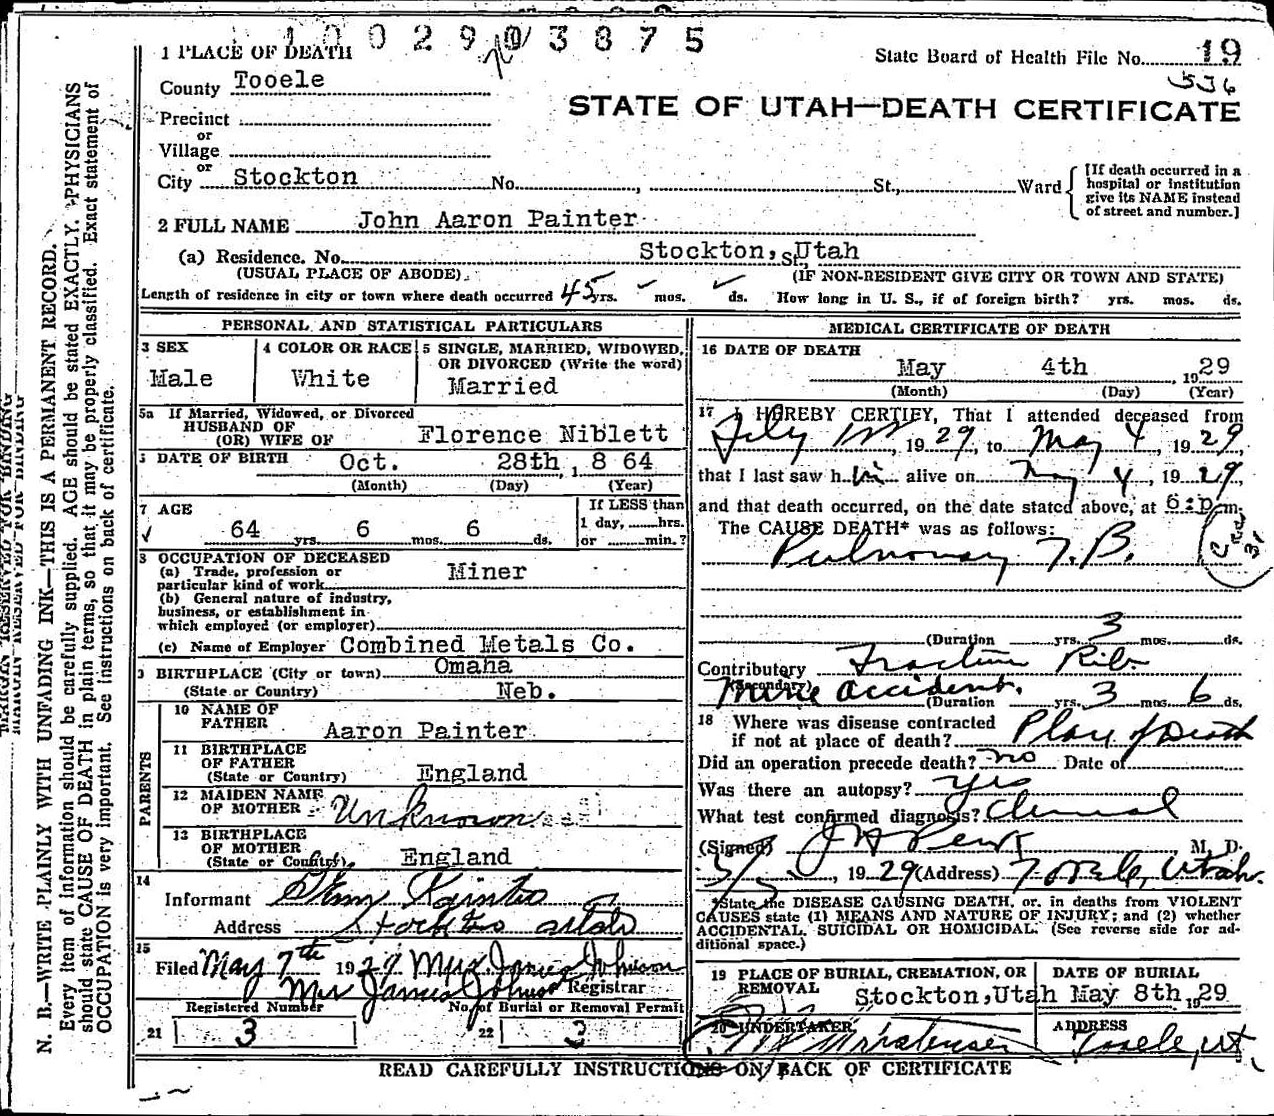 1 0 0 2 9 0 3 8 7 5
1 PLACE OF DEATH
State Board of Health File No. 19
536
County Tooele
STATE OF UTAH—DEATH CERTIFICATE
Precinct
or
Village
or
City Stockton No. , St., Ward
[If death occurred in a
hospital or institution
give its NAME instead
of street and number.]
2 FULL NAME John Aaron Painter
(a) Residence. No. Stockton, St. Utah
(USUAL PLACE OF ABODE) (IF NON-RESIDENT GIVE CITY OR TOWN AND STATE)
Length of residence in city or town where death occurred 45 yrs. mos. ds. How long in U. S., if of foreign birth? yrs. mos. ds.
PERSONAL AND STATISTICAL PARTICULARS
3 SEX
Male
4 COLOR OR RACE
White
5 SINGLE, MARRIED, WIDOWED,
OR DIVORCED (Write the word)
Married
5a If Married, Widowed, or Divorced
HUSBAND OF
(OR) WIFE OF Florence Niblett
DATE OF BIRTH Oct. 28th, 8 64
(Month) (Day) (Year)
7 AGE
64 yrs. 6 mos. 6 ds.
If LESS than
1 day, hrs.
or min.?
8 OCCUPATION OF DECEASED
(a) Trade, profession or
particular kind of work Miner
(b) General nature of industry,
business, or establishment in
which employed (or employer)
(c) Name of Employer Combined Metals Co.
9 BIRTHPLACE (City or town) Omaha
(State or Country) Neb.
PARENTS
10 NAME OF
FATHER Aaron Painter
11 BIRTHPLACE
OF FATHER
(State or Country) England
12 MAIDEN NAME
OF MOTHER Unknown
13 BIRTHPLACE
OF MOTHER
(State or Country) England
14
Informant Painter
Address Stockton Utah
15
Filed May 7th 1929 Mrs. James Johnson
Mrs James Johnson Registrar
Registered Number No. of Burial or Removal Permit
21 3 22 3
MEDICAL CERTIFICATE OF DEATH
16 DATE OF DEATH
May 4th, 1929
(Month) (Day) (Year)
17 I HEREBY CERTIFY, That I attended deceased from
1929, to May 4, 1929
that I last saw him alive on May 4, 1929,
and that death occurred, on the date stated above, at 6:p m.
The CAUSE DEATH* was as follows:
Pulmonary T.B.
31
(Duration yrs. 3 mos. ds.
Contributory Fracture Rib
(Secondary) Mine accident.
(Duration yrs. 3 mos. 6 ds.
18 Where was disease contracted
if not at place of death? Place of Death
Did an operation precede death? no Date of
Was there an autopsy? yes
What test confirmed diagnosis? Clinical
(Signed) M. D.
1929 (Address) Tooele, Utah.
*State the DISEASE CAUSING DEATH, or, in deaths from VIOLENT
CAUSES state (1) MEANS AND NATURE OF INJURY; and (2) whether
ACCIDENTAL, SUICIDAL OR HOMICIDAL. (See reverse side for ad-
ditional space.)
19 PLACE OF BURIAL, CREMATION, OR
REMOVAL
Stockton, Utah
DATE OF BURIAL
May 8th, 1929
20 UNDERTAKER
ADDRESS
Tooele, Ut.
READ CAREFULLY INSTRUCTIONS ON BACK OF CERTIFICATE
MARGIN RESERVED FOR BINDING
N. B.—WRITE PLAINLY WITH UNFADING INK—THIS IS A PERMANENT RECORD.
Every item of information should be carefully supplied. AGE should be stated EXACTLY. PHYSICIANS
should state CAUSE OF DEATH in plain terms, so that it may be properly classified. Exact statement of
OCCUPATION is very important. See instructions on back of certificate.